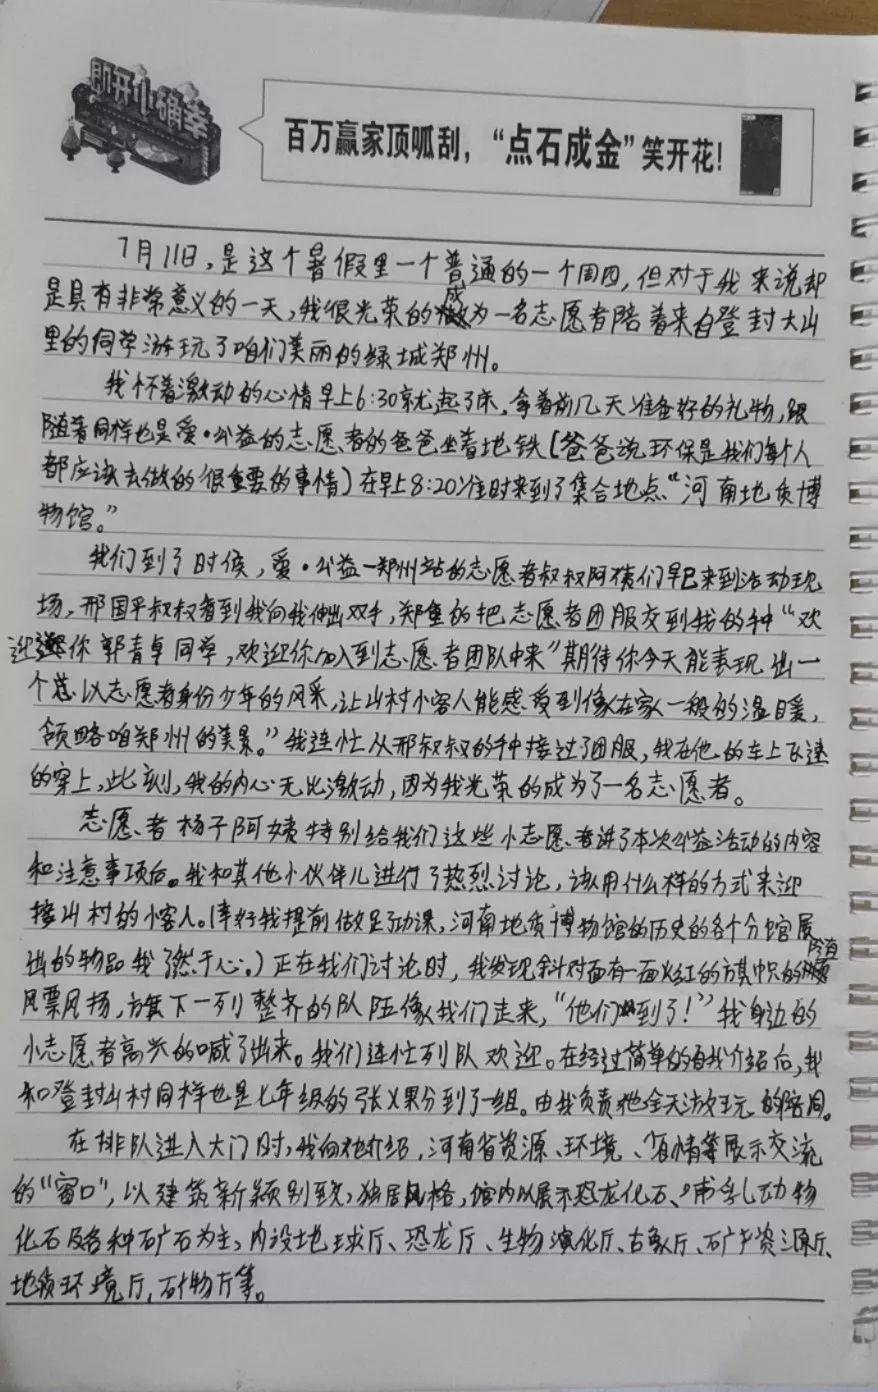 即开小确幸
百万赢家顶呱刮，“点石成金”笑开花！
7月11日，是这个暑假里一个普通的一个周四，但对于我来说却
是具有非常意义的一天，我很光荣的成为一名志愿者陪着来自登封大山
里的同学游玩了咱们美丽的绿城郑州。
我怀着激动的心情早上6:30就起了床，拿着前几天准备好的礼物，跟
随着同样也是爱·公益的志愿者的爸爸坐着地铁（爸爸说环保是我们每个人
都应该去做的很重要的事情）在早上8:20准时来到了集合地点“河南地质博
物馆。”
我们到了时候，爱·公益一郑州站的志愿者叔叔阿姨们早已来到活动现
场，邢国平叔叔看到我向我伸出双手，郑重的把志愿者团服交到我的手中“欢
迎你郭青卓同学，欢迎你加入到志愿者团队中来”期待你今天能表现出一
个以志愿者身份少年的风采，让山村小客人能感受到像在家一般的温暖，
领略咱郑州的美景。”我连忙从邢叔叔的手中接过了团服，我在他的车上飞速
的穿上，此刻，我的内心无比激动，因为我光荣的成为了一名志愿者。
志愿者杨子阿姨特别给我们这些小志愿者讲了本次公益活动的内容
和注意事项后。我和其他小伙伴儿进行了热烈讨论，该用什么样的方式来迎
接山村的小客人。（幸好我提前做足了功课，河南地质博物馆的历史的各个分馆展
出的物品我了然于心。）正在我们讨论时，我发现斜对面有一面火红的旗帜的
风飘扬，旗下一列整齐的队伍像我们走来，“他们到了！”我身边的
小志愿者高兴的喊了出来。我们连忙列队欢迎。在经过简单的自我介绍后，我
和登封山村同样也是七年级的张义果分到了一组。由我负责他全天游玩的陪同。
在排队进入大门时，我向他介绍，河南省资源、环境、省情等展示交流
的“窗口”，以建筑新颖别致，独居风格，馆内以展示恐龙化石、哺乳动物
化石及各种矿石为主，内设地球厅、恐龙厅、生物演化厅、古象厅、矿产资源厅、
地质环境厅，矿物厅等。